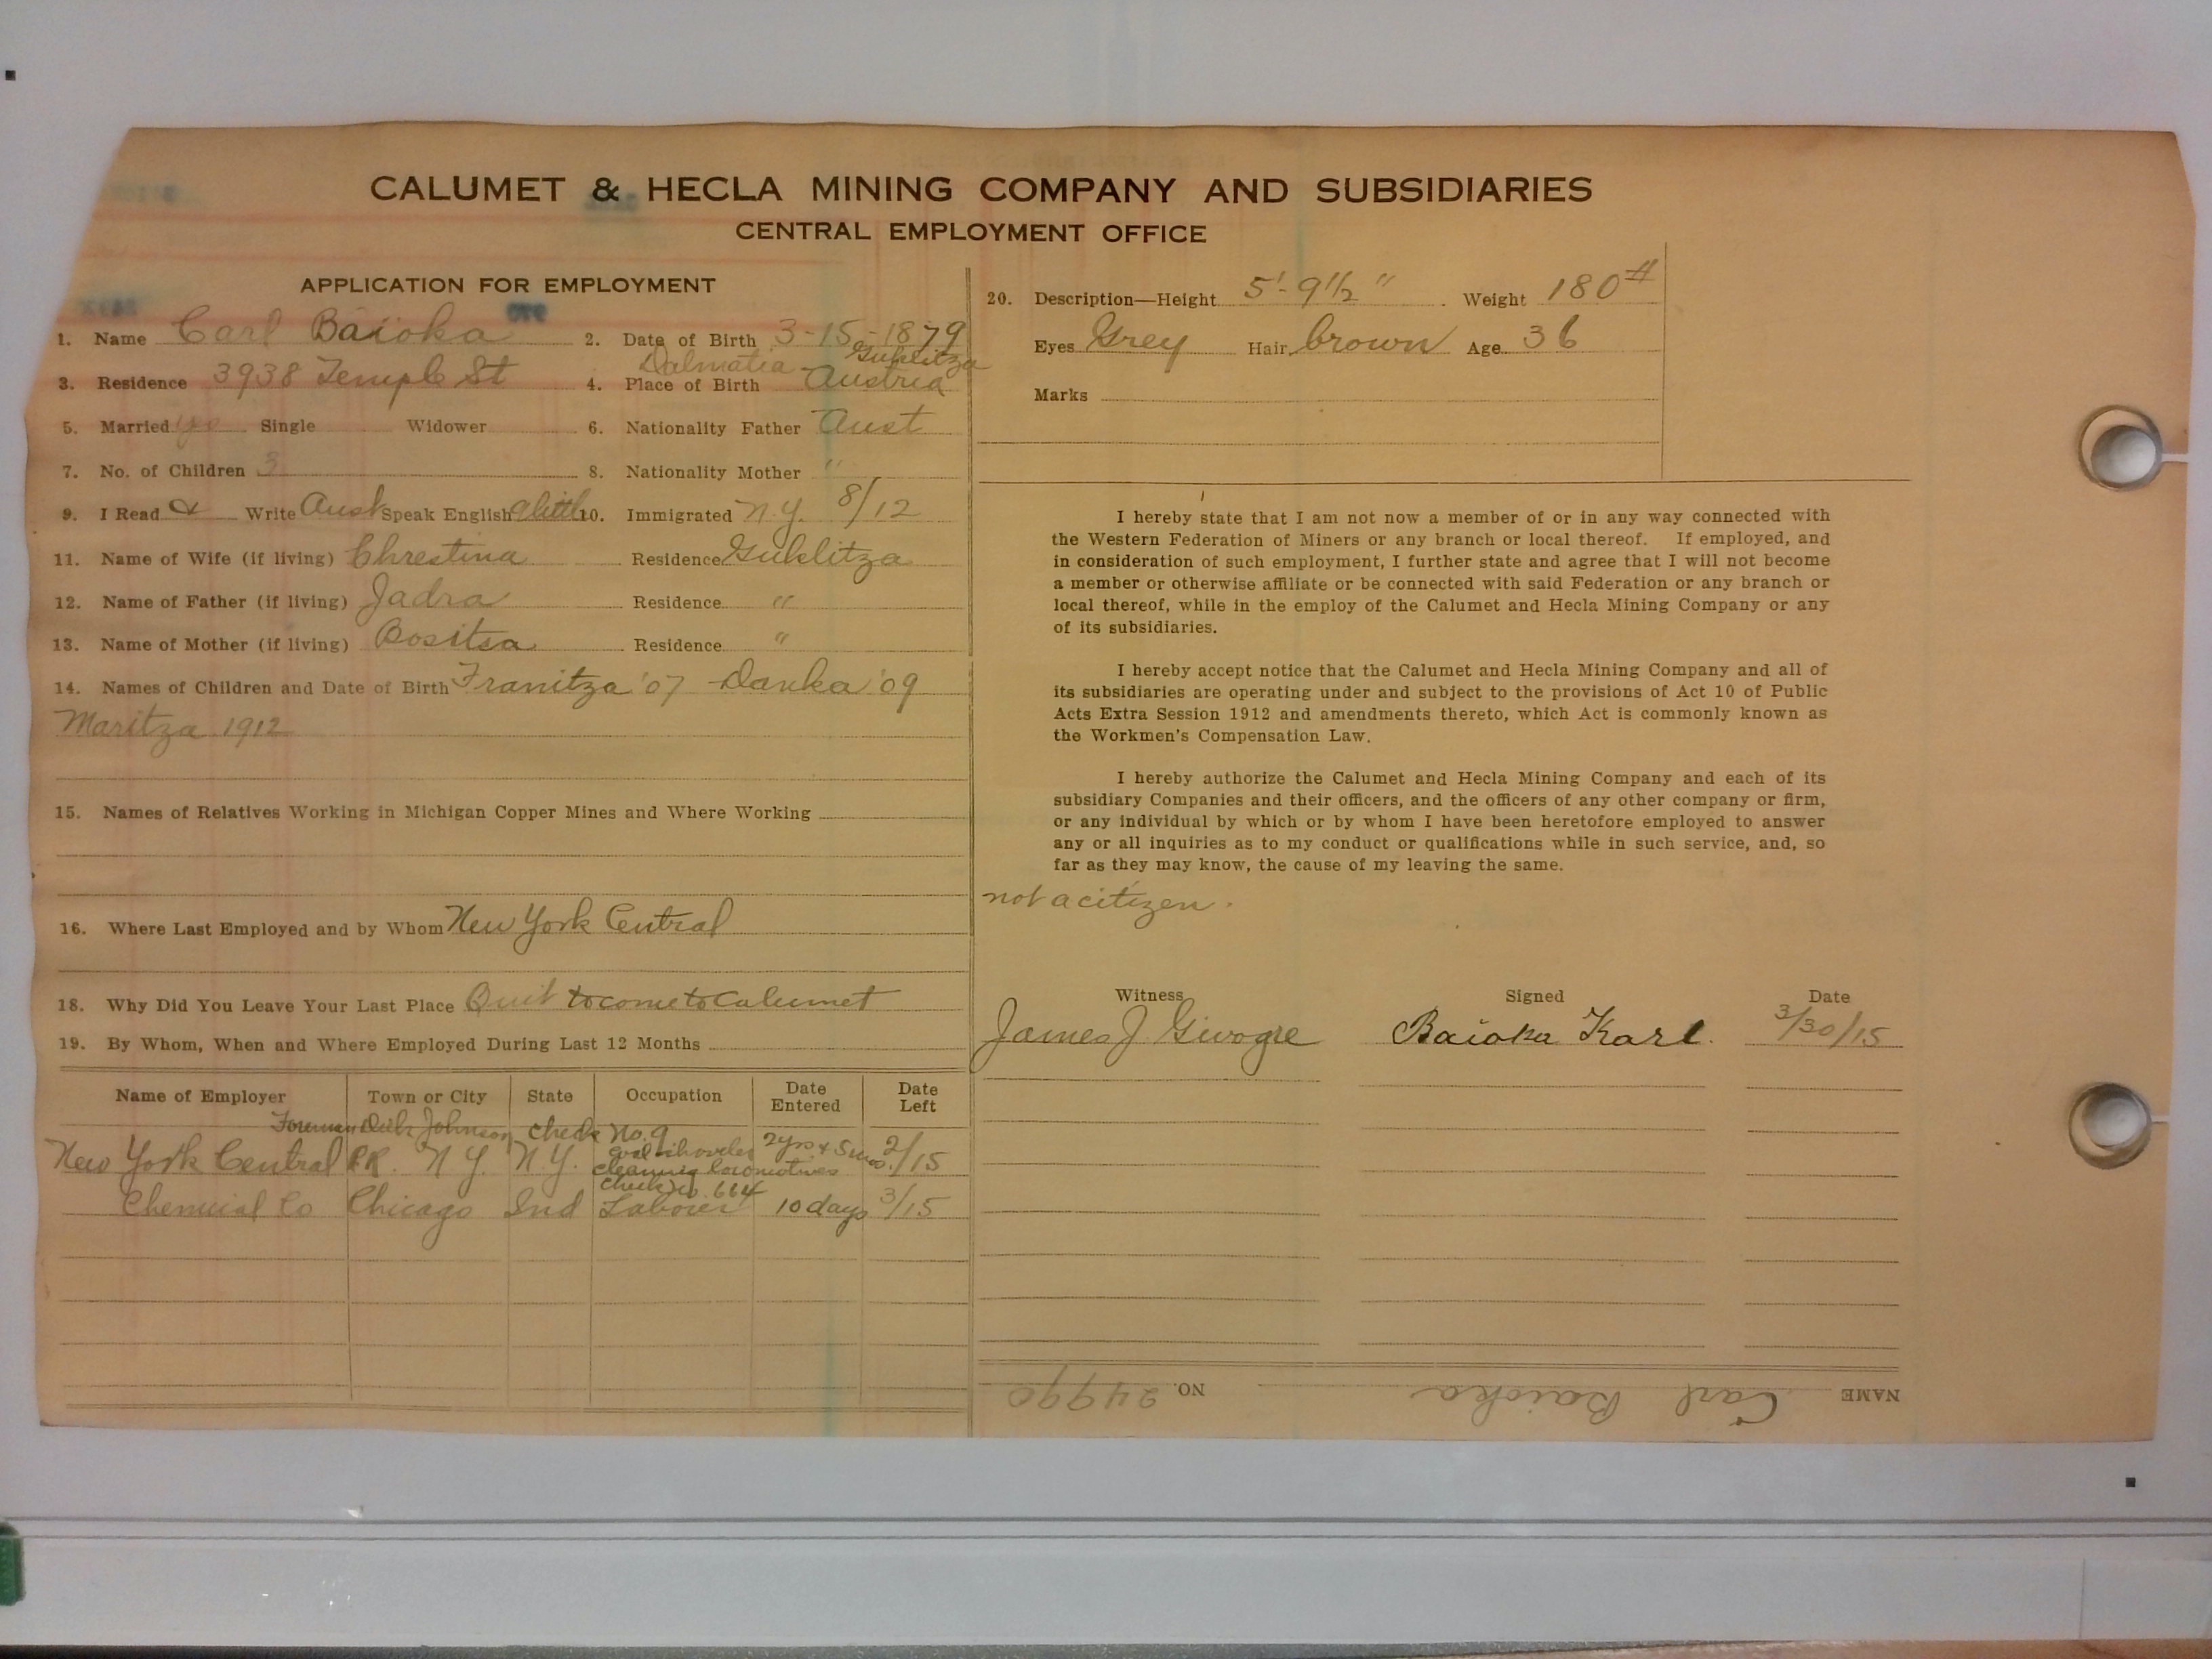 CALUMET & HECLA MINING COMPANY AND SUBSIDIARIES
CENTRAL EMPLOYMENT OFFICE
APPLICATION FOR EMPLOYMENT
1. Name Carl Baioka 2. Date of Birth 3-15-1879
Dalmatia
3. Residence 3938 Temple St 4. Place of Birth Austria
5. Married yes Single Widower 6. Nationality Father Aust
7. No. of Children 3 8. Nationality Mother "
9. I Read & Write Aust Speak English alittle 10. Immigrated N.Y. 8/12
11. Name of Wife (if living) Chrestina Residence Guklitza
12. Name of Father (if living) Jadra Residence "
13. Name of Mother (if living) Bositsa Residence "
14. Names of Children and Date of Birth Franitza '07 Danka '09
Maritza 1912
15. Names of Relatives Working in Michigan Copper Mines and Where Working
16. Where Last Employed and by Whom New York Central
18. Why Did You Leave Your Last Place Quit to come to Calumet
19. By Whom, When and Where Employed During Last 12 Months
Name of Employer Town or City State Occupation Date Entered Date Left
Foreman Dick Johnson check No. 9
New York Central RR. N.Y. N.Y. coal shoveler 2yrs & 5mos. 2/15
cleaning locomotives
check No. 664
Chemical Co Chicago Ind Laborer 10 days 3/15
20. Description—Height 5'-9½" Weight 180#
Eyes Grey Hair brown Age 36
Marks
I hereby state that I am not now a member of or in any way connected with
the Western Federation of Miners or any branch or local thereof. If employed, and
in consideration of such employment, I further state and agree that I will not become
a member or otherwise affiliate or be connected with said Federation or any branch or
local thereof, while in the employ of the Calumet and Hecla Mining Company or any
of its subsidiaries.
I hereby accept notice that the Calumet and Hecla Mining Company and all of
its subsidiaries are operating under and subject to the provisions of Act 10 of Public
Acts Extra Session 1912 and amendments thereto, which Act is commonly known as
the Workmen's Compensation Law.
I hereby authorize the Calumet and Hecla Mining Company and each of its
subsidiary Companies and their officers, and the officers of any other company or firm,
or any individual by which or by whom I have been heretofore employed to answer
any or all inquiries as to my conduct or qualifications while in such service, and, so
far as they may know, the cause of my leaving the same.
not a citizen.
Witness Signed Date
James J. Baioka Karl. 3/30/15
NAME Carl Baioka NO. 24990